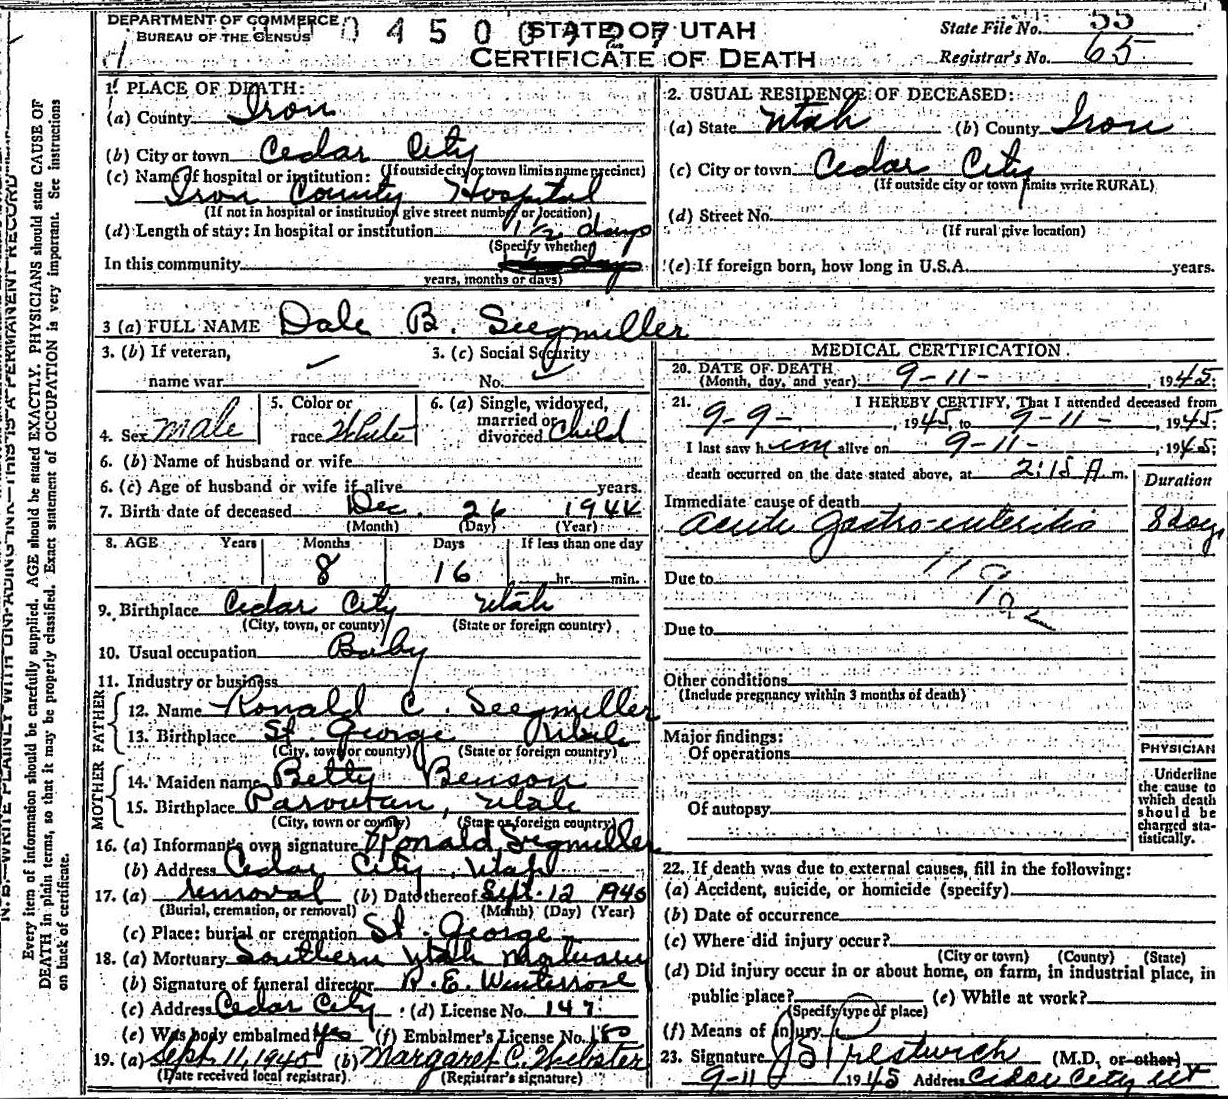 DEPARTMENT OF COMMERCE
BUREAU OF THE CENSUS
STATE OF UTAH
CERTIFICATE OF DEATH
State File No. 55
Registrar's No. 65
1. PLACE OF DEATH:
(a) County Iron
(b) City or town Cedar City
(If outside city or town limits name precinct)
(c) Name of hospital or institution:
Iron County Hospital
(If not in hospital or institution give street number or location)
(d) Length of stay: In hospital or institution 1 1/2 days
(Specify whether
In this community
years, months or days)
2. USUAL RESIDENCE OF DECEASED:
(a) State Utah (b) County Iron
(c) City or town Cedar City
(If outside city or town limits write RURAL)
(d) Street No.
(If rural give location)
(e) If foreign born, how long in U.S.A. years.
3 (a) FULL NAME Dale B. Seegmiller
3. (b) If veteran,
name war
3. (c) Social Security
No.
4. Sex Male
5. Color or
race White
6. (a) Single, widowed,
married or
divorced Child
6. (b) Name of husband or wife
6. (c) Age of husband or wife if alive years.
7. Birth date of deceased Dec. 26 1944
(Month) (Day) (Year)
8. AGE Years Months Days If less than one day
8 16 hr. min.
9. Birthplace Cedar City Utah
(City, town, or county) (State or foreign country)
10. Usual occupation Baby
11. Industry or business
FATHER
12. Name Ronald C. Seegmiller
13. Birthplace St. George Utah
(City, town or county) (State or foreign country)
MOTHER
14. Maiden name Betty Benson
15. Birthplace Parowan, Utah
(City, town or county) (State or foreign country)
16. (a) Informant's own signature Ronald Seegmiller
(b) Address Cedar City, Utah
17. (a) removal (b) Date thereof Sept. 12 1945
(Burial, cremation, or removal) (Month) (Day) (Year)
(c) Place: burial or cremation St. George
18. (a) Mortuary Southern Utah Mortuary
(b) Signature of funeral director R. E. Winterrose
(c) Address Cedar City (d) License No. 147
(e) Was body embalmed yes (f) Embalmer's License No. 180
19. (a) Sept 11, 1945 (b) Margaret C. Webster
(Date received local registrar). (Registrar's signature)
MEDICAL CERTIFICATION
20. DATE OF DEATH
(Month, day, and year) 9-11-, 1945.
21. I HEREBY CERTIFY, That I attended deceased from
9-9-, 1945, to 9-11-, 1945;
I last saw him alive on 9-11-, 1945;
death occurred on the date stated above, at 2:15 A.m.
Duration
Immediate cause of death
Acute Gastro-enteritis 8 days
Due to
Due to
Other conditions
(Include pregnancy within 3 months of death)
Major findings:
Of operations
Of autopsy
PHYSICIAN
Underline
the cause to
which death
should be
charged sta-
tistically.
22. If death was due to external causes, fill in the following:
(a) Accident, suicide, or homicide (specify)
(b) Date of occurrence
(c) Where did injury occur?
(City or town) (County) (State)
(d) Did injury occur in or about home, on farm, in industrial place, in
public place? (e) While at work?
(Specify type of place)
(f) Means of injury
23. Signature J S Prestwich (M.D. or other)
9-11 1945 Address Cedar City Ut
N. B.—WRITE PLAINLY WITH UNFADING INK—THIS IS A PERMANENT RECORD
Every item of information should be carefully supplied. AGE should be stated EXACTLY. PHYSICIANS should state CAUSE OF
DEATH in plain terms, so that it may be properly classified. Exact statement of OCCUPATION is very important. See instructions
on back of certificate.